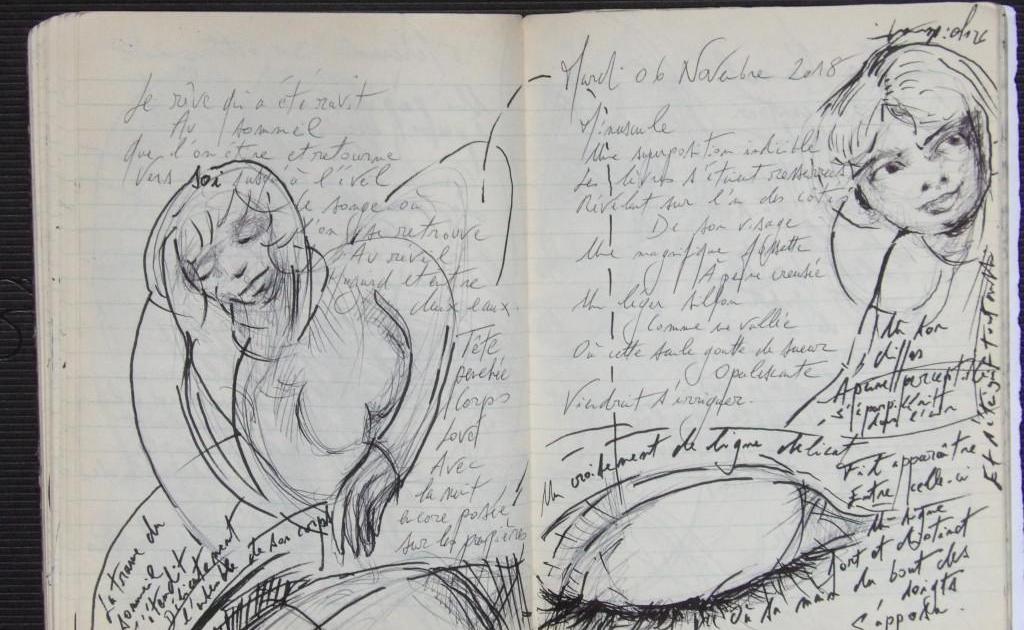 Le rêve qui a été ravit
Au sommeil
que l'on étire et retourne
vers soi jusqu'à l'évei l
le songe ou
l'on se retrouve
Au réveil
et entre
deux eaux.
Tête
penchée
Corps
lové
Avec
la nuit
encore posée
sur les paupières
La trame du
sommeil
s'étendit
Délicatement
de son corps
Mardi 06 Novembre 2018
Minuscule
Une superposition indicible
Les livres s'étant resserrées
Révélant sur l'un des côtés
De son visage
Une magnifique fossette
À peine creusée
Un léger sillon
Comme une vallée
Où cette seule goutte de sueur
Opalescente
Viendrait s'irriguer.
Un son
À peine perceptible
s'éparpillait
dans l'air
Un croisement de ligne délicat
Fit apparaître
Entre celle-ci
Un signe
fort et distinct
où la main du bout des
doigts
s'apposa.